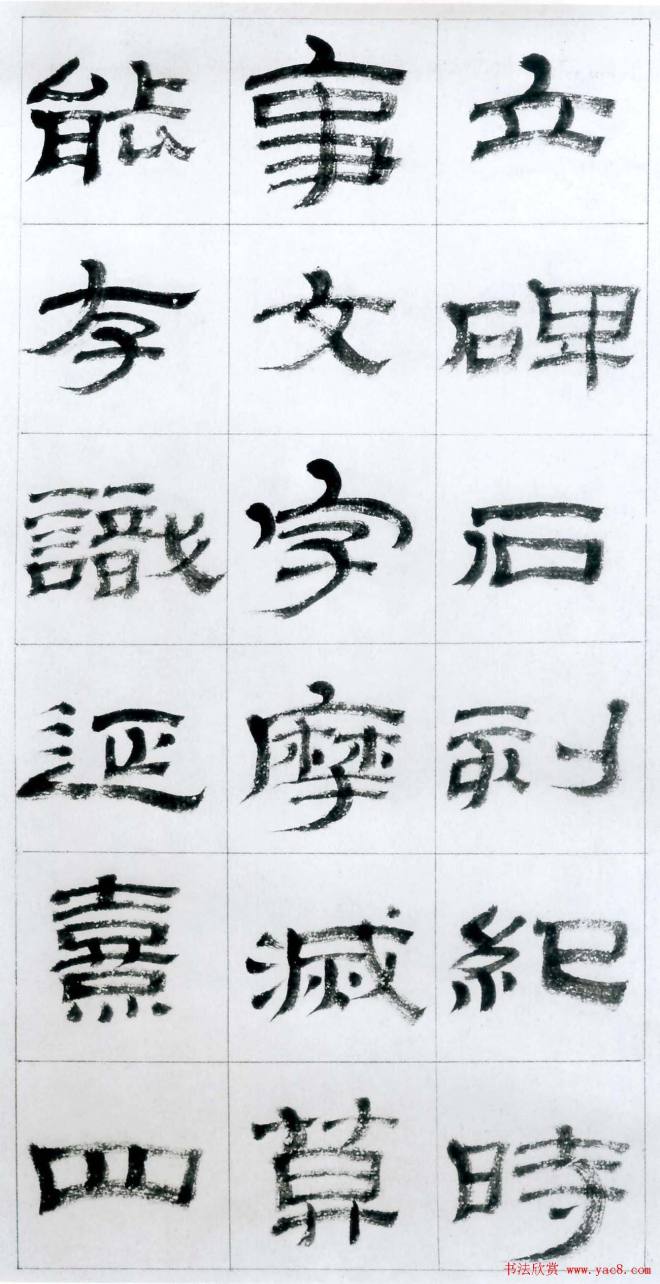 立碑石刻紀時
事文字摩滅莫
能存識延熹四
书法欣赏 www.yac8.com